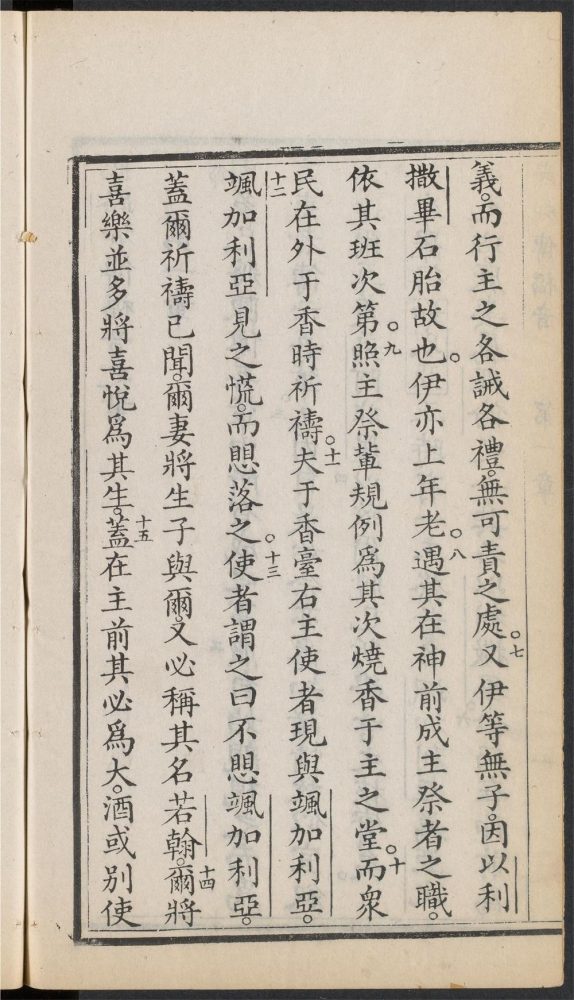 義。而行主之各誡各禮。無可責之處。七又伊等無子。因以利
撒畢石胎故也。伊亦上年老。八遇其在神前成主祭者之職。
依其班次第。九照主祭輩規例爲其次燒香于主之堂。十而衆
民在外于香時祈禱。十一夫于香臺右主使者現與颯加利亞。
十二颯加利亞見之慌。而愳落之。十三使者謂之曰不愳颯加利亞。
蓋爾祈禱已聞。爾妻將生子與爾。又必稱其名若翰。十四爾將
喜樂並多將喜悅爲其生。十五蓋在主前其必爲大。酒或別使